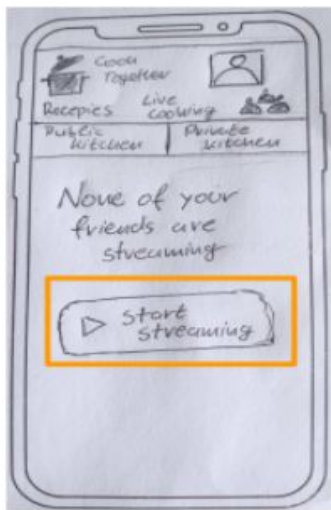 Cook
Together
Recepies
Live
cooking
Public
kitchen
Private
kitchen
None of your
friends are
streaming
Start
streaming